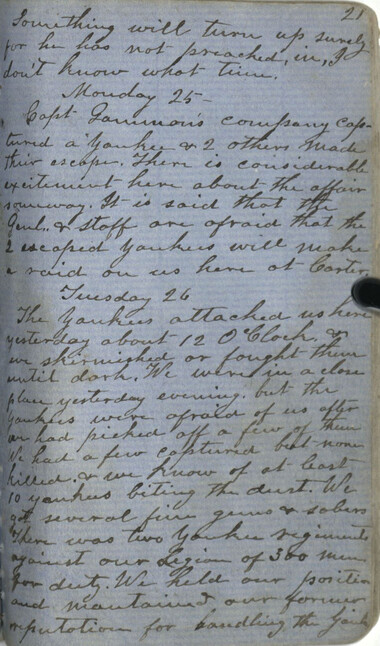 21
Something will turn up surely
for he has not preached, in, I
don't know what time.
Monday 25-
Capt company cap-
tured a Yankee & 2 others made
their escape. There is considerable
excitement here about the affair
someway. It is said that the
Genl. & staff are afraid that the
2 escaped Yankees will make
a raid on us here at Carter.
Tuesday 26
The Yankees attacked us here
yesterday about 12 O'Clock. &
we skirmished or fought them
until dark. We were in a close
place yesterday evening. but the
Yankees were afraid of us after
we had picked off a few of them
We had a few captured but none
killed. & we know of at least
10 yankees biting the dust. We
got several fine guns & sabers
There was two Yankee regiments
against our Legion of 300 men
for duty. We held our position
and maintained our former
reputation for handling the Yank